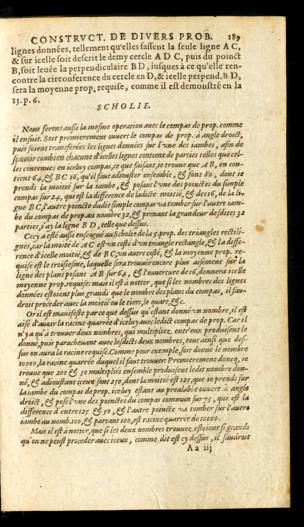 CONSTRVCT. DE DIVERS PROB. 189
lignes données, tellement qu'elles fassent la seule ligne A C,
& sur icelle soit descrit le demy cercle A D C, puis du poinct
B, soit leuée la perpendiculaire B D, iusques à ce qu'elle ren-
contre la circonference du cercle en D, & icelle perpend. B D,
sera la moyenne prop. requise, comme il est demonstré en la
13. p. 6.
SCHOLIE.
Nous ferons aussi la mesme operation auec le compas de prop. comme
il ensuit. Soit premierement ouuert le compas de prop. à angle droict,
puis soient transferées les lignes données sur l'vne des iambes, afin de
sçauoir combien chacune d'icelles lignes contient de parties telles que cel-
les contenues en iceluy compas, ce que faisant, ie trouue que A B, en con-
tient 64, & B C 16, qu'il faut adiouster ensemble, & font 80, dont ie
prends la moitié sur la iambe, & posant l'vne des poinctes du simple
compas sur 24, qui est la difference de ladite moitié, & des 16, de la li-
gne B C, l'autre poincte dudit simple compas va tomber sur l'autre iam-
be du compas de prop. au nombre 32, & prenant la grandeur desdites 32
parties, i'ay la ligne B D, telle que dessus.
Cecy a esté aussi enseigné au Scholie de la 5. prop. des triangles rectili-
gnes, car la moitié de A C est vn costé d'vn triangle rectangle, & la diffe-
rence d'icelle moitié, & de B C, vn autre costé, & la moyenne prop. re-
quise est le troisiesme, laquelle sera trouuée encore plus aisement sur la
ligne des plans posant A B sur 64, & l'ouuerture de 16, donnera icelle
moyenne prop. requise: mais il est à noter, que si les nombres des lignes
données estoient plus grands que le nombre des plans du compas, il fau-
droit proceder auec la moitié ou le tiers, le quart, &c.
Or il est manifeste par ce que dessus qu'estant donné vn nombre, il est
aisé d'auoir la racine quarrée d'iceluy auec ledict compas de prop. Car il
n'y a qu'à trouuer deux nombres, qui multipliez, entr'eux produisent le
donné, puis paracheuant auec lesdicts deux nombres, tous ainsi que des-
sus on aura la racine requise. Comme pour exemple, soit donné le nombre
10000, la racine quarrée duquel il faut trouuer. Premierement donc, ie
trouue que 200 & 50 multipliés ensemble produisent ledit nombre don-
né, & adioustant iceux font 250, dont la moitié est 125, que ie prends sur
la iambe du compas de prop. iceluy estant au prealable ouuert à angle
droict, & pose l'vne des poinctes du compas commun sur 75, qui est la
difference d'entre 125 & 50, & l'autre poincte va tomber sur l'autre
iambe au nomb. 100, & partant 100, est racine quarrée de 10000.
Mais il est à noter, que si les deux nombres trouuez estoient si grands
qu'on ne peust proceder auec iceux, comme dit est cy dessus, il faudroit
A a iij